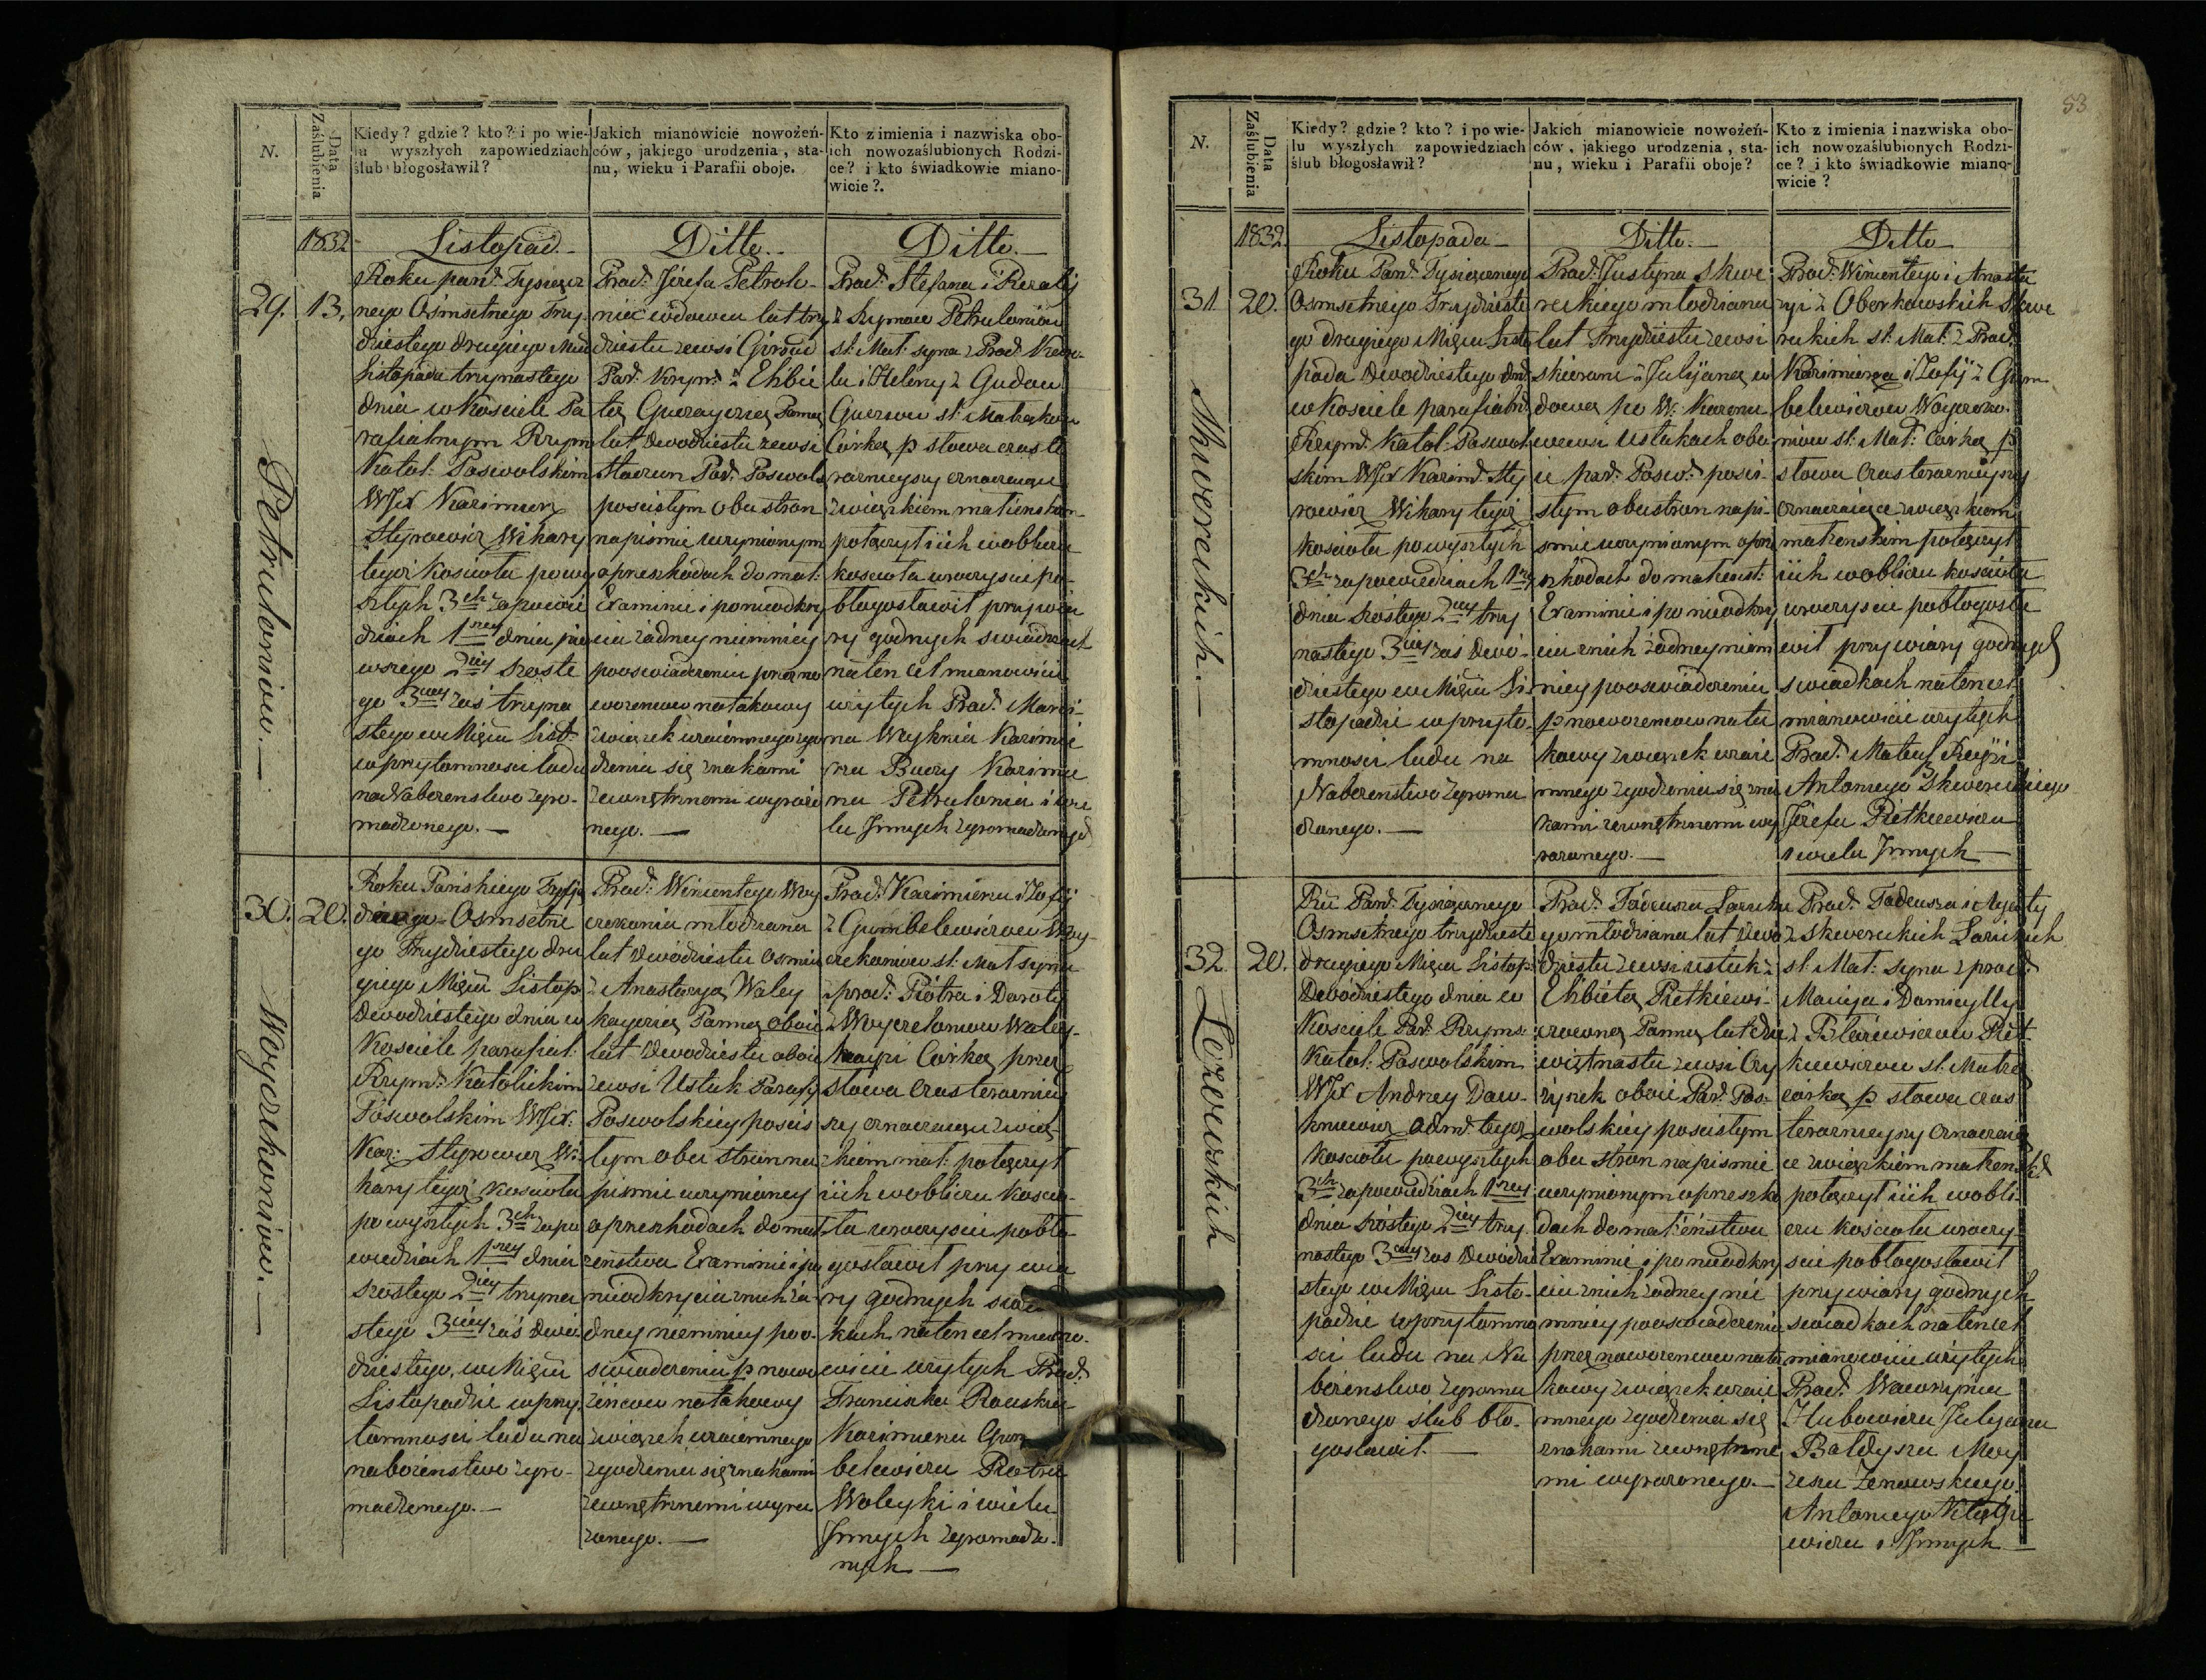 N.
Data Zaślubienia
Kiedy? gdzie? kto? i po wie-
lu wyszłych zapowiedziach
ślub błogosławił?
Jakich mianowicie nowożeń-
ców, jakiego urodzenia, sta-
nu, wieku i Parafii oboje.
Kto z imienia i nazwiska obo-
ich nowozaślubionych Rodzi-
ce? i kto świadkowie miano-
wicie?
1832
Listopad.
Ditto.
Ditto.
29. 13.
Petruloniow.
Roku pańd. Tysiącz
nego Ośmsetnego Trzy-
dziestego drugiego Mca
Listopada trzynastego
dnia w Kościele Pa
rafialnym Rzym
Katol: Poswolskim
WJX Kazimierz
Styrowicz Wikary
tegoż Kościoła powy
szłych 3ch zapowie
dziach 1szey dnia pie
wszego 2iey szoste
go 3ciey zaś trzyna
stego w Miącu List:
w przytomnosci ludu
na Nabożenstwo zgro-
madzonego.
Prad. Józefa Petrulo-
nieć wdowca lat trzy
dziestu zewsi Girdun
Par. Krym. z Elżbie
tą Panną
lat dwudziestu zewsi
Par. Poswols
poscisłym obu stron
napismie uczynionym
o przeszkodach do mał:
Examinie i ponieodkry
cia żadney niemniey
pooswiadczeniu przez no
wożencow natakowy
związek wzaiemnego zgo
dzenia się znakami
zewnętrznemi wyrażo
nego.
Prad. Stefana i Rozalij
z Petrulonion
sl: Mał: syna z Prad. Karo
la i Heleny z
sl: Małżąkow
Corką p słowa czas te
razniejszy oznaczaiące
związkiem małżenskim
połączył iich w obliczu
koscioła uroczyscie po-
błogosławił przy wia
ry godnych swiadkach
naten cel mianowicie
użytych Prad. Marci-
na Kazimie
rza Buczy Kazimie
rza Petrulonia i wie
lu Jnnych zgromadzonych
30. 20.
Woyczekoniow.
Roku Pańskiego Tysią
Osmsetne
go Trzydziestego dru
giego Miąca Listop:
Dwudziestego dnia w
Kościele parafial:
Rzym. Katolickim
Poswolskim WJX:
Kaz: Styrowicz Wi-
kary tegoż Kościoła
po wyszłych 3ch zapo
wiedziach 1szey dnia
szostego 2iey trzyna
stego 3ciey zaś dwu
dziestego, w Miącu
Listopadzie w przy
tomnosci ludu na
nabożenstwo zgro-
madzonego.
Prad: Wincentego Woy
czekonia młodziana
lat dwudziestu osmiu
z Anastazyą Waley
Panną oboie
lat dwudziestu oboie
zewsi Ustuk Parafij
Poswolskiey poscis
łym obu stron na
pismie uczynioney
o przeszkodach do mał
żeństwa Examinie i po
nieodkryciu znich ża-
dney niemniey poo-
swiadczeniu p nowo
żencow natakowy
związek wzaiemnego
zgodzenia się znakami
zewnętrznemi wyra
żonego.
Prad. Kazimierza i Zofij
z Gumbelewiczow Woy-
czekoniow sl: Mał syna
z prad: Piotra i Doroty
z Woyczeloniow Waley-
Corką przez
słowa czas teraźniey
szy oznaczaiące zwią-
zkiem mał: połączył
iich w obliczu Koscio-
ła uroczyscie pobło-
gosławił przy wia
ry godnych swiad
kach naten cel miano-
wicie użytych Prad.
Franciszka
Kazimierza Gum
belewicza Piotra
Woleyki i wielu
Jnnych zgromadzo-
nych
53
N.
Data Zaślubienia
Kiedy? gdzie? kto? i po wie-
lu wyszłych zapowiedziach
ślub błogosławił?
Jakich mianowicie nowożeń-
ców, jakiego urodzenia, sta-
nu, wieku i Parafii oboje?
Kto z imienia i nazwiska obo-
ich nowozaślubionych Rodzi-
ce? i kto świadkowie miano-
wicie?
1832.
Listopada
Ditto.
Ditto
31 20.
Skwereckich.
Roku Pand. Tysiącznego
Osmsetnego Trzydzieste
go drugiego Miąca Listo
pada Dwudziestego dnd
w Kosciele parafialnd.
Rzymd. Katol: Poswol
skim WJX Kazimd. Sty
rowicz Wikary tegoż
Kosciola po wyszłych
3ch zapowiedziach 1szey
dnia szóstego 2iey trzy
nastego 3ciey zaś dwu-
dziestego w Miącu Li-
stopadzie w przyto-
mnosci ludu na
Nabożenstwo zgroma
dzonego.
Prad. Justyna Skwe
reckiego młodziana
lat trzydziestu zewsi
z Julijaną w
dową po W:
wewsi Ustukach obo
ie par. Posw. poscis-
łym obustron napi-
smie uczynionym o prze
szkodach do małżeńst:
Examinie i po nieodkry
ciu znich żadney niem
niey pooswiadczeniu
p nowożencow na ta
kowy związek wzaie
mnego zgodzenia się zna
kami zewnętrznemi wy
rażonego.
Prad. Wincentego i Anasta
zyi z Oborkowskich Skwe
reckich sl: Mał: z Prad.
Kazimierza i Zofij z Gum
belewiczow Woyczeko-
niow sl: Mał: Corką p
słowa czas teraźnieyszy
oznaczaiące związkiem
małżenskim połączył
iich w obliczu kościoła
uroczyscie pobłogosła
wił przy wiary godnych
swiadkach naten cel
mianowicie użytych
Prad. Mateusz
Antoniego Skwereckiego
Józefa Pietkiewicza
i wielu Jnnych
32. 20.
Łozowskich
Ru Pand. Tysiącznego
Osmsetnego trzydzieste
drugiego Miąca Listop:
Dwudziestego dnia w
Kosciele Par. Rzyms:
Katol: Poswolskim
WJX Andrzey Daw-
kniewicz Admd. tegoż
Kosciola po wyszłych
3ch zapowiedziach 1szey
dnia szóstego 2iey trzy
nastego 3ciey zas Dwudzie
stego w Miącu Listo-
padzie w przytomno
sci ludu na Na
bożenstwo zgroma
dzonego ślub bło-
gosławił.
Prad. Tadeusza
go młodziana lat dwu
dziestu zewsi ustuk z
Elżbietą Pietkiewi-
czowną Panną lat dzie
więtnastu zewsi
oboie Par. Pos-
wolskiey poscisłym
obu stron napismie
uczynionym o przeszko
dach do małżeństwa
Examinie i po nieodkry
ciu znich żadney nie
mniey pooswiadczeniu
przez nowożencow nata
kowy związek wzaie
mnego zgodzenia się
znakami zewnętrzne
mi wyrażonego.
Prad. Tadeusza i Agaty
z Skwereckich
sl: Mał: syna z prad.
Macieja i Domicelly
z Piet-
kiewiczow sl: Małżą
corką p słowa czas
teraźnieyszy oznaczaią
ce związkiem małżensk
połączył iich w obli-
czu kościoła uroczy
scie pobłogosławił
przy wiary godnych
swiadkach naten cel
mianowicie użytych
Prad. Wawrzyńca
Julijana
Bałdysza Moy
żesza Zenowskiego,
Antoniego
wicza i Jnnych